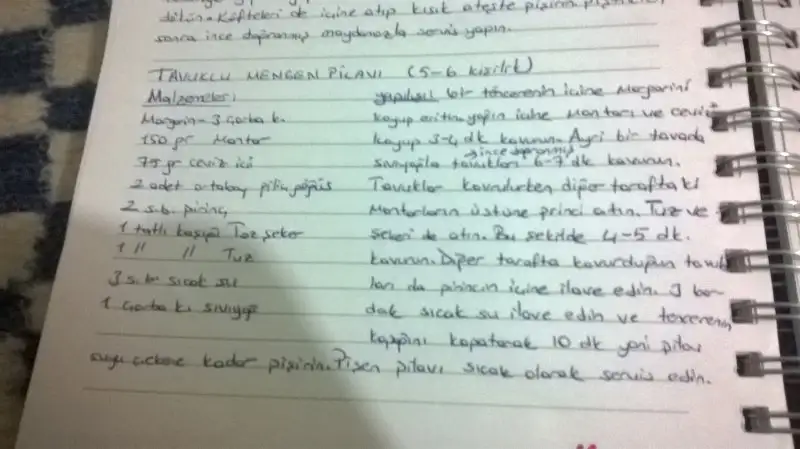 dökün. Köfteleri de içine atıp kısık ateşte pişirin.
sonra ince doğranmış maydonozla servis yapın.
TAVUKLU MENGEN PİLAVI (5-6 kişilik)
Malzemeler:
Margarin - 3 çorba k.
150 gr Mantar
75 gr ceviz içi
2 adet ortaboy piliç göğüs
2 s.b. pirinç
1 tatlı kaşığı Toz şeker
1 // // Tuz
3 s.b. sıcak su
1 çorba k. sıvıyağ
yapılışı bir tencerenin içine Margarini
koyup eritin. yağın içine Mantarı ve cevizi
koyup 3-4 dk kavurun. Ayrı bir tavada
ince doğranmış
sıvıyağla tavukları 6-7 dk kavurun.
Tavuklar kavrulurken diğer taraftaki
Mantarların üstüne princi atın. Tuz ve
şekeri de atın. Bu şekilde 4-5 dk.
kavurun. Diğer tarafta kavurduğun tavuk
ları da pirincin içine ilave edin. 3 bar
dak sıcak su ilave edin ve tencerenin
kapağını kapatarak 10 dk yani pilav
suyu çekene kadar pişirin. Pişen pilavı sıcak olarak servis edin.